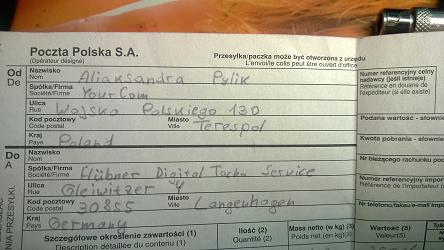 Poczta Polska S.A.
(Opérateur désigné)
Przesyłka/paczka może być otworzona z urzędu
L'envoi/le colis peut être ouvert d'office
Od
De
Nazwisko
Nom
Aliaksandra Pylik
Spółka/Firma
Société/Firme
YourCom
Ulica
Rue
Wojska Polskiego 130
Kod pocztowy
Code postal
Miasto
Ville
Terespol
Kraj
Pays
Poland
Do
A
Nazwisko
Nom
Spółka/Firma
Société/Firme
Hübner Digital Tacho Service
Ulica
Rue
Gleiwitzer 4
Kod pocztowy
Code postal
30855
Miasto
Ville
Langenhagen
Kraj
Pays
Germany
Numer referencyjny celny
nadawcy (jeśli istnieje)
Référence en douane de
l'expéditeur (si elle existe)
Podana wartość - słownie
Kwota pobrania - słownie
Nr bieżącego rachunku
Numer referencyjny
Référence de l'importateur
Nr telefonu/faksu/e-mail
Szczegółowe określenie zawartości (1)
Description détaillée du contenu (1)
Ilość (2)
Quantité (2)
Masa netto (w kg) (3)
Poids net (en kg) (3)
Wartość (5)
Valeur (5)
NIA PRZESYŁKI